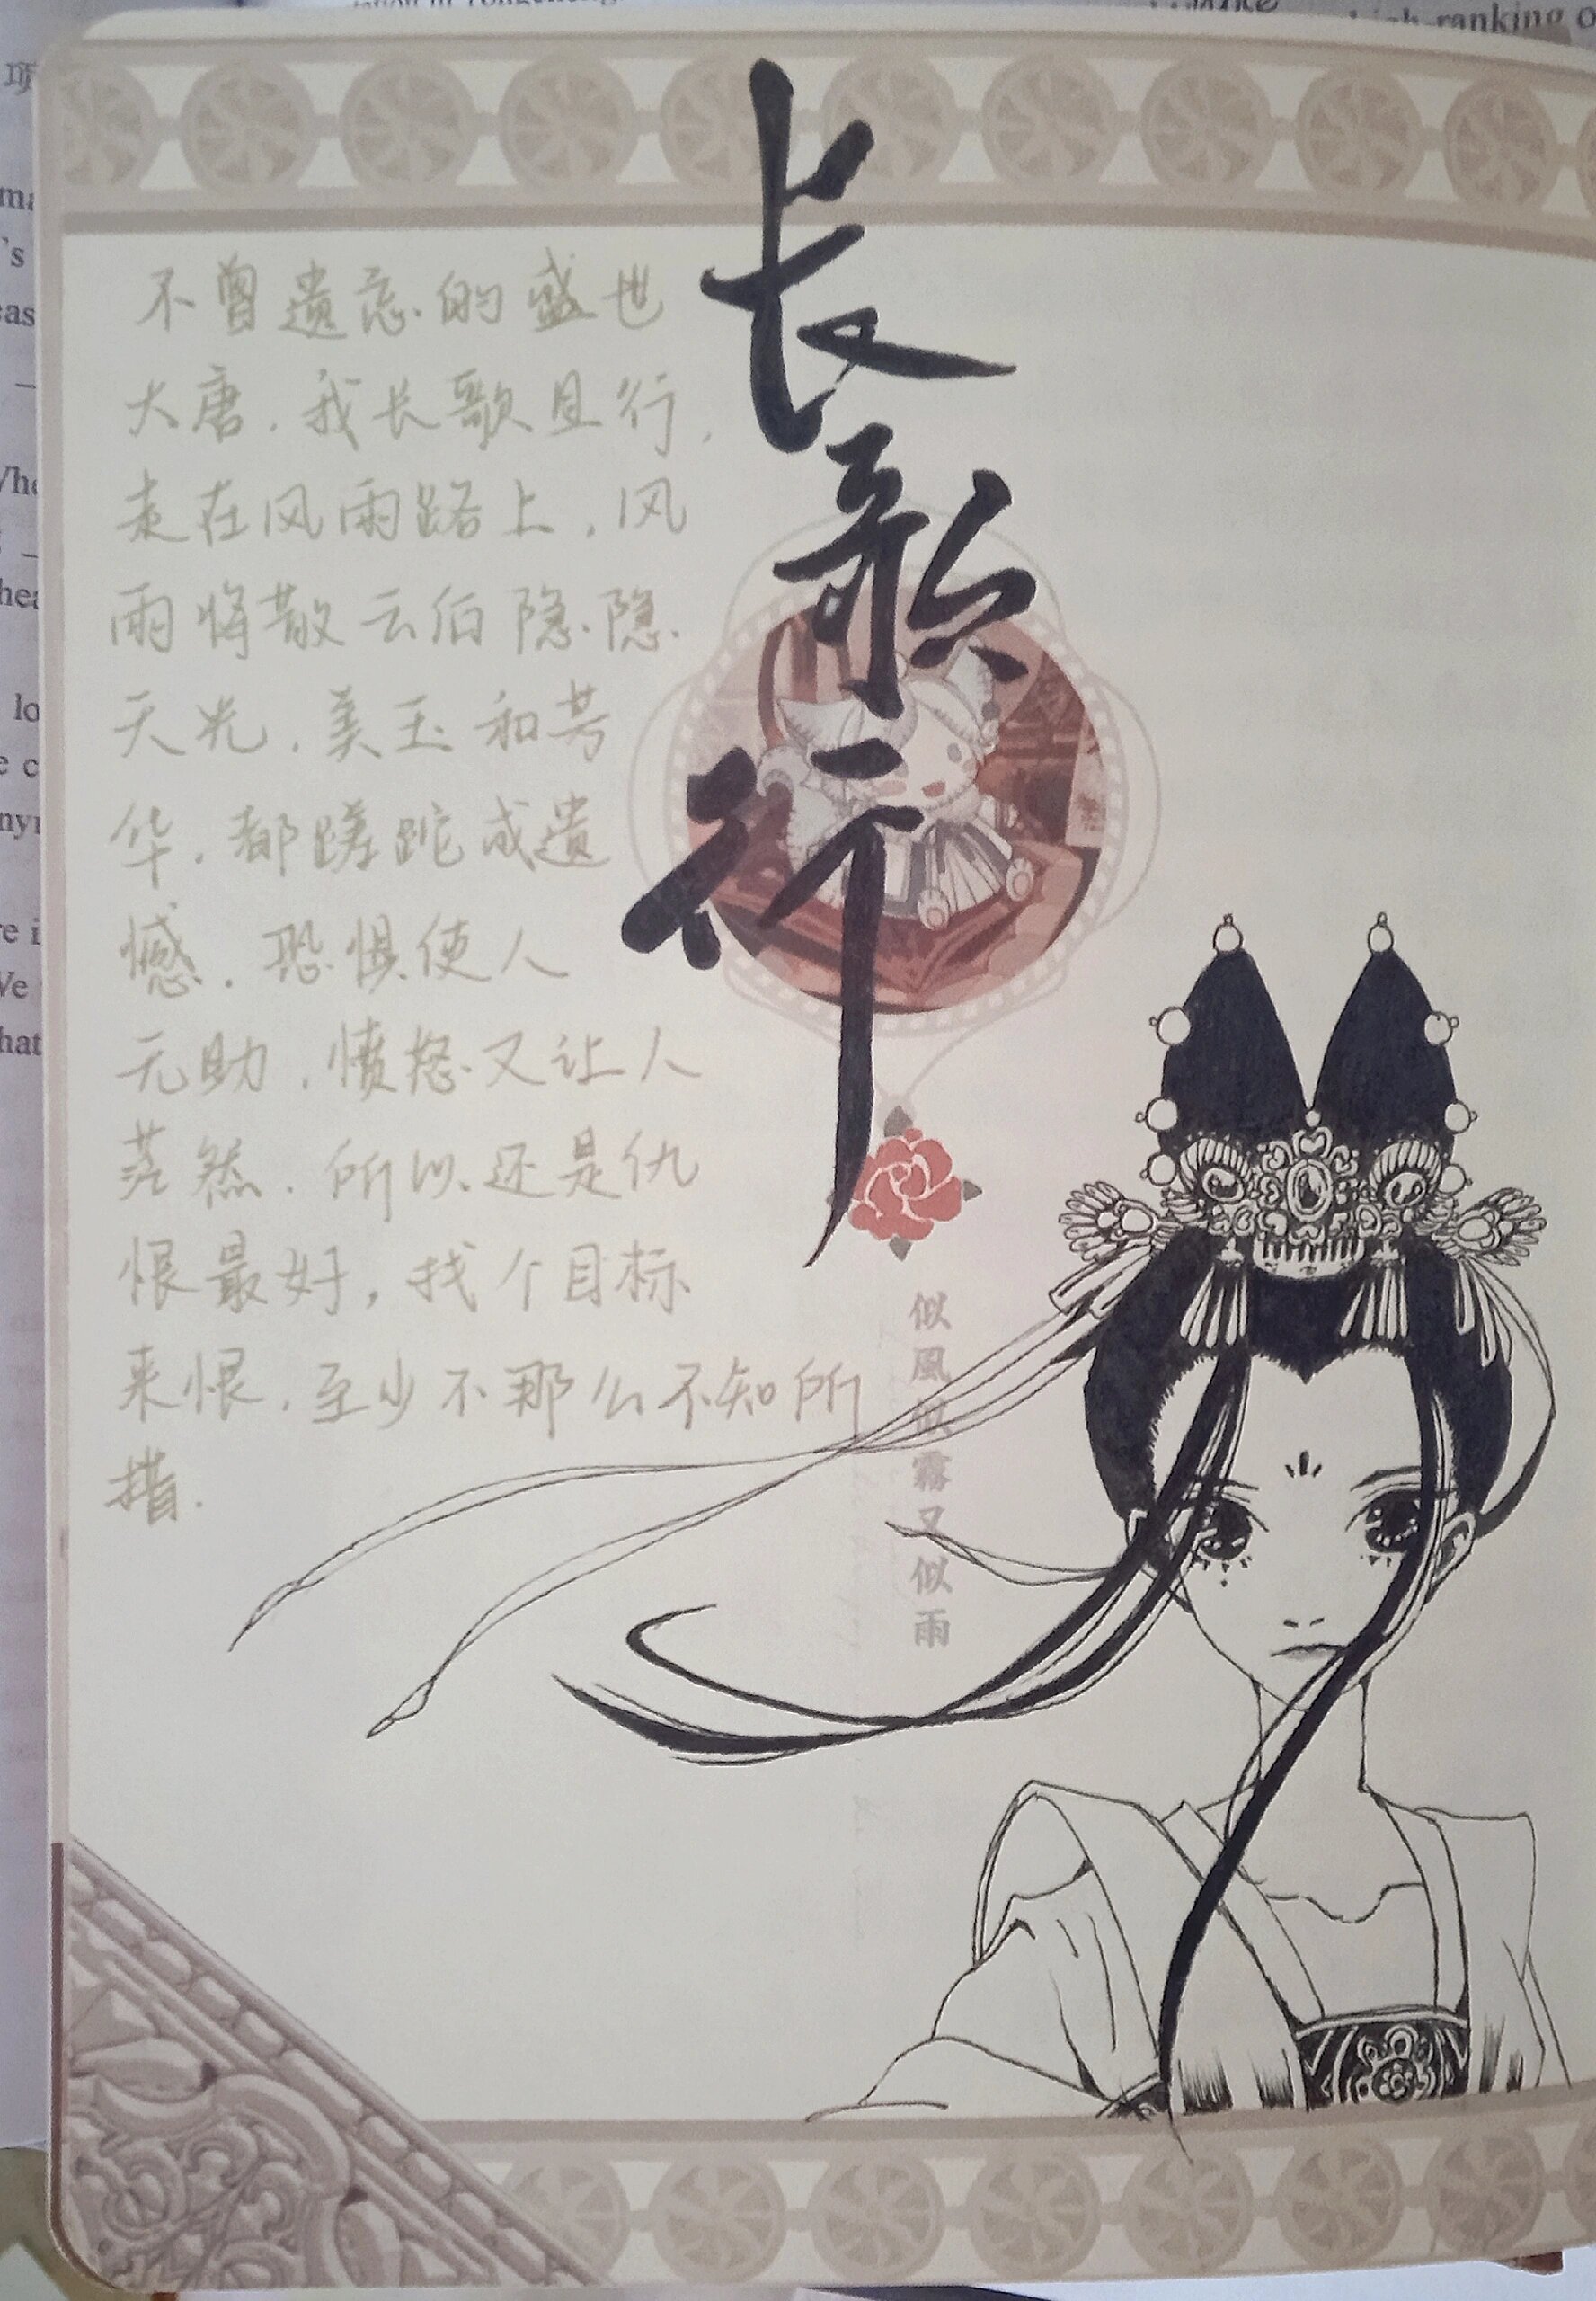 长歌行
不曾遗忘的盛世
大唐，我长歌且行，
走在风雨路上，风
雨将散云伯隐隐
天光，美玉和芳
华，都蹉跎成遗
憾，恐惧使人
无助，愤怒又让人
茫然，所以还是仇
恨最好，找个目标
来恨，至少不那么不知所
措.
似風似霧又似雨
項
ranking